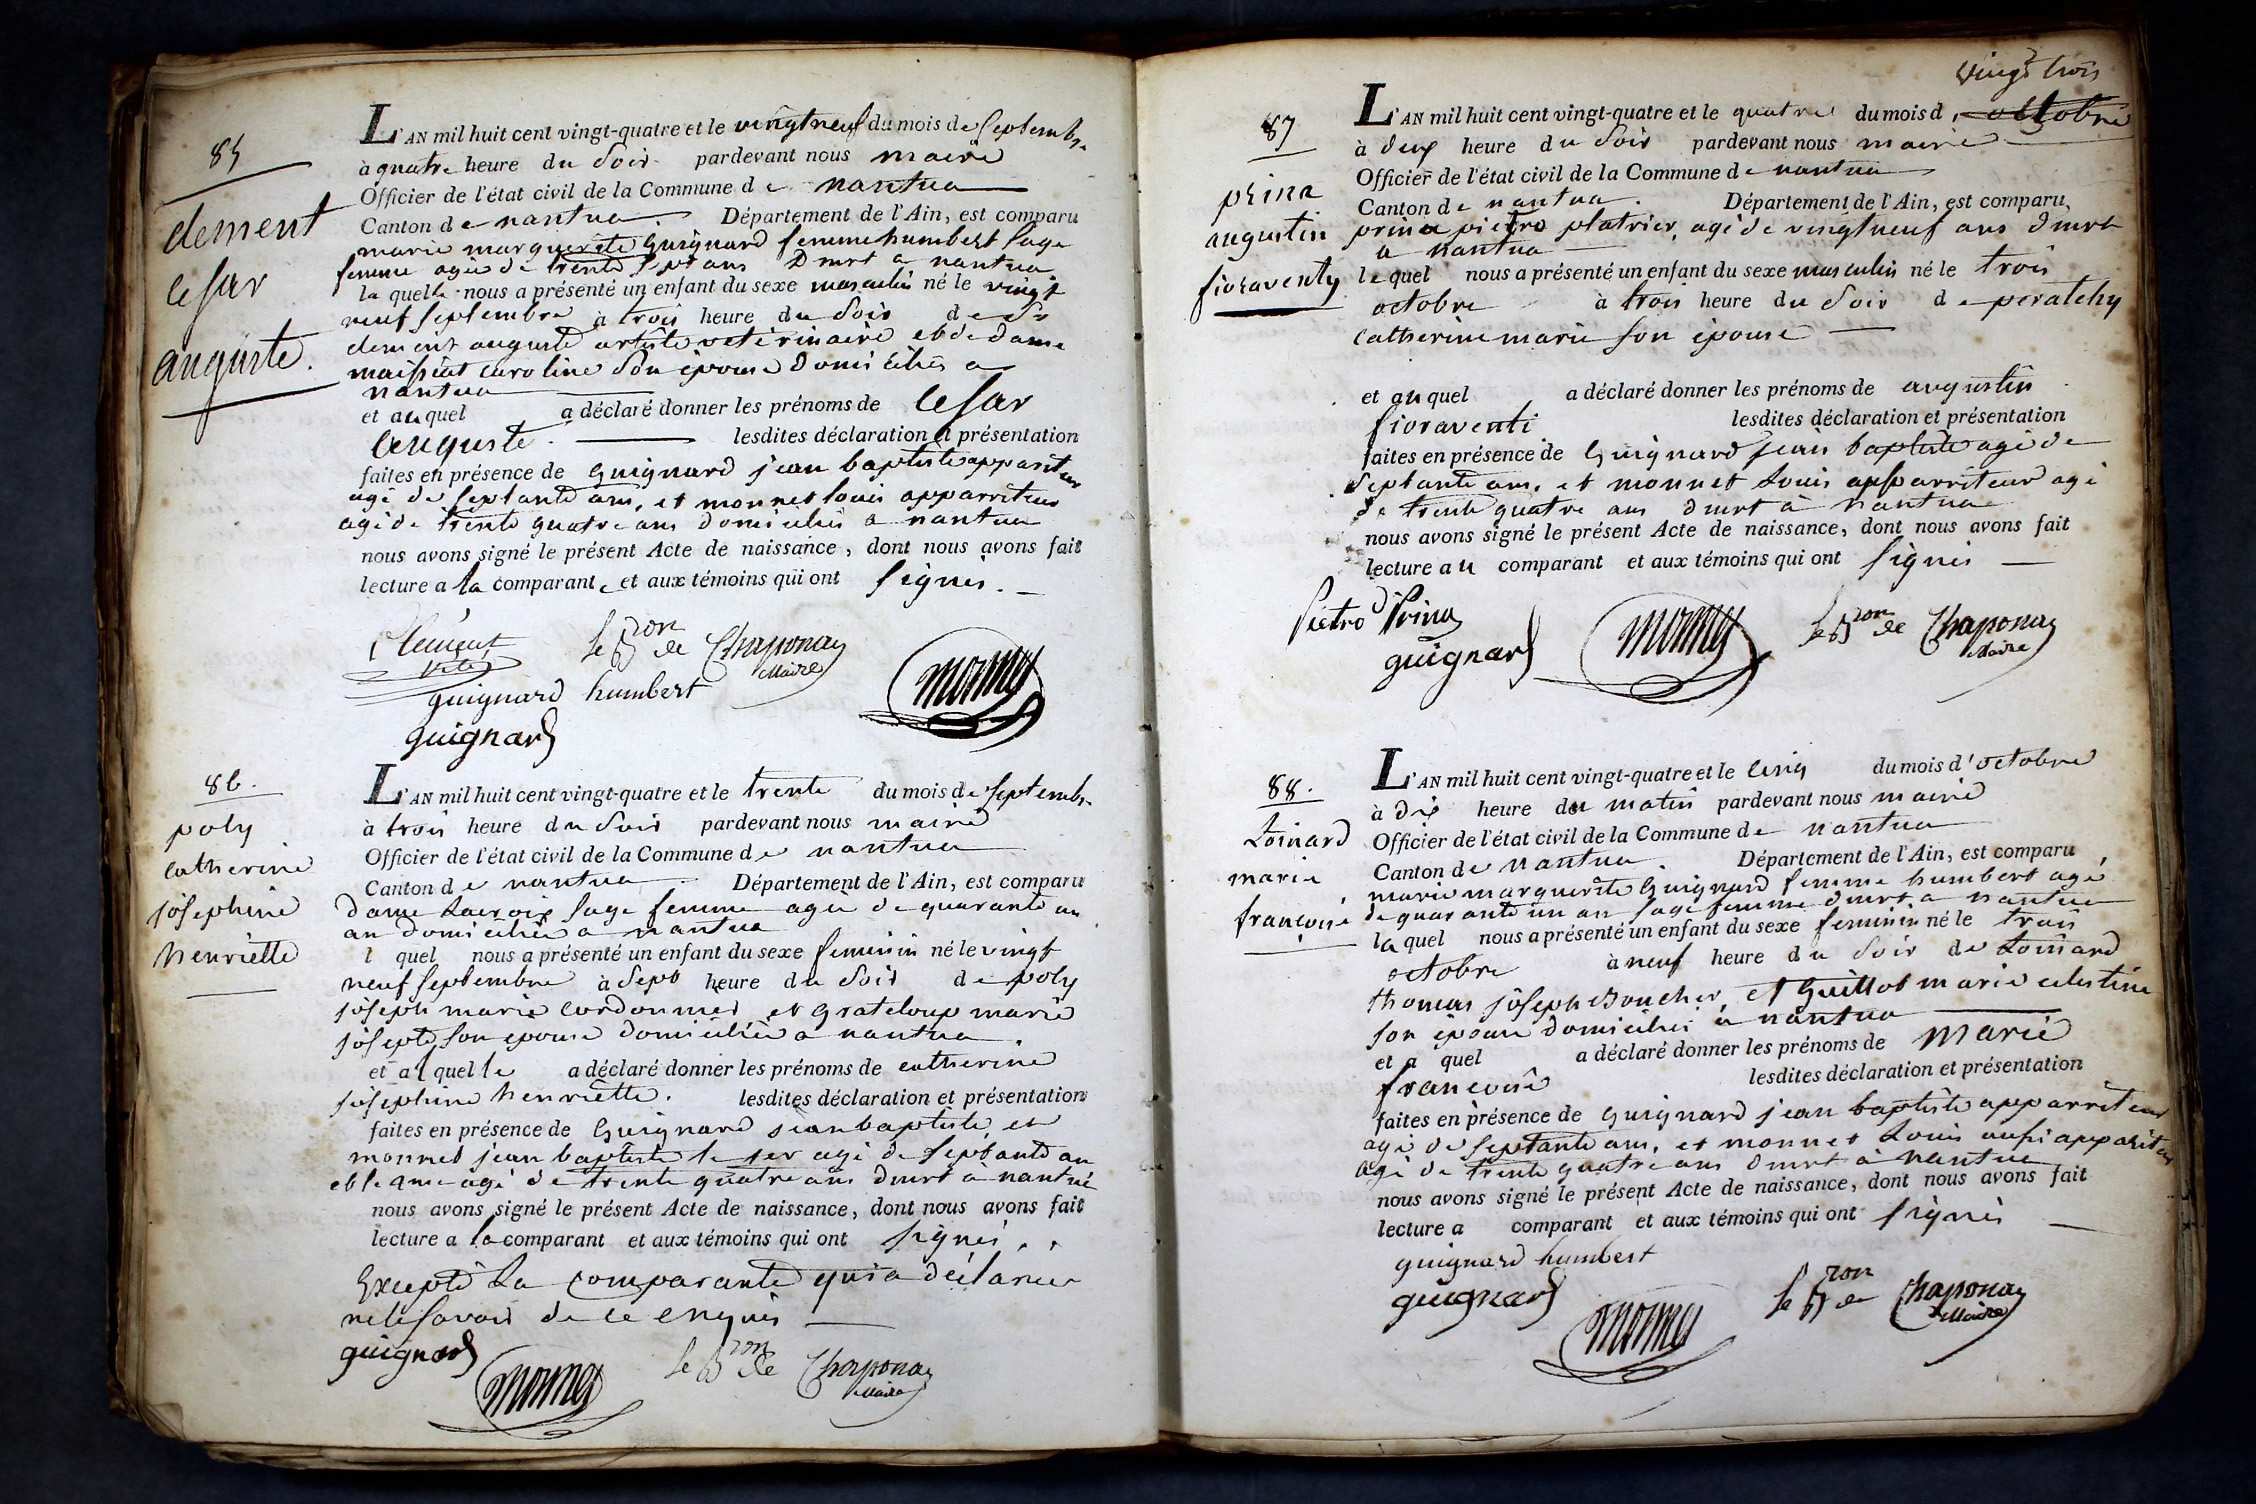 85
clement
cesar
auguste.
L'AN mil huit cent vingt-quatre et le vingt neuf du mois de septembre
à quatre heure du soir pardevant nous maire
Officier de l'état civil de la Commune de nantua
Canton de nantua. Département de l'Ain, est comparu
marie marguerite Guignard femme humbert sage
femme agee de trente sept ans Dmrt a nantua
la quelle nous a présenté un enfant du sexe masculin né le vingt
neuf septembre à trois heure du soir de Sr
clement auguste artiste vétérinaire et de dame
maissiat caroline son épouse domiciliés a
nantua
et au quel a déclaré donner les prénoms de cesar
auguste. lesdites déclaration et présentation
faites en présence de Guignard jean baptiste appariteur
agé de septante ans, et monnet louis apparriteur
agé de trente quatre ans domiciliés a nantua
nous avons signé le présent Acte de naissance, dont nous avons fait
lecture a la comparante et aux témoins qui ont signés.
Clément
le Bron de Chaponay
Maire
guignard humbert
monnet
guignard
86.
poly
catherine
josephine
henriette
L'AN mil huit cent vingt-quatre et le trente du mois de septembre
à trois heure du soir pardevant nous maire
Officier de l'état civil de la Commune de nantua
Canton de nantua Département de l'Ain, est comparu
dame Lacroix sage femme agee de quarante un
an domiciliée a nantua
l quel nous a présenté un enfant du sexe feminin né le vingt
neuf septembre à sept heure du soir de poly
joseph marie cordonnier et grateloup marie
josepte son epouse domiciliée a nantua
et a l quelle a déclaré donner les prénoms de catherine
josephine henriette. lesdites déclaration et présentation
faites en présence de Guignard jean baptiste et
monnet jean baptiste le 1er agé de septante an
et le 2me agé de trente quatre ans dmrt à nantua
nous avons signé le présent Acte de naissance, dont nous avons fait
lecture a la comparant et aux témoins qui ont signés..
Excepté La comparante qui a déclarer
ne le savoir de ce enquis
guignard
monnet
le Bron de Chaponay
Maire
Vingt trois
87
prina
augustin
fioraventy
L'AN mil huit cent vingt-quatre et le quatre du mois d'octobre
à deux heure du soir pardevant nous maire
Officier de l'état civil de la Commune de nantua
Canton de nantua. Département de l'Ain, est comparu
prina pietro platrier, agé de vingt neuf ans dmrt
a nantua
le quel nous a présenté un enfant du sexe masculin né le trois
octobre à trois heure du soir de peratchy
catherine marie son épouse
et au quel a déclaré donner les prénoms de augustin
fioraventi lesdites déclaration et présentation
faites en présence de Guignard jean baptiste agé de
septante ans, et monnet Louis apparriteur agé
de trente quatre ans dmrt à nantua
nous avons signé le présent Acte de naissance, dont nous avons fait
lecture au comparant et aux témoins qui ont signés
Pietro Prina
guignard
monnet
le Bron de Chaponay
Maire
88.
Loinard
marie
françoise
L'AN mil huit cent vingt-quatre et le cinq du mois d'octobre
à dix heure du matin pardevant nous maire
Officier de l'état civil de la Commune de nantua
Canton de nantua. Département de l'Ain, est comparu
marie marguerite Guignard femme humbert agé
de quarante un an sage femme dmrt a nantua
la quel nous a présenté un enfant du sexe feminin né le trois
octobre à neuf heure du soir de Loinard
thomas joseph Boucher, et Guillot marie celestine
son épouse domiciliés à nantua
et a quel a déclaré donner les prénoms de marie
francoise lesdites déclaration et présentation
faites en présence de Guignard jean baptiste apparriteur
agé de septante ans, et monnet Louis aussi appariteur
agé de trente quatre ans dmrt à nantua
nous avons signé le présent Acte de naissance, dont nous avons fait
lecture a comparant et aux témoins qui ont signés
guignard humbert
guignard
monnet
le Bron de Chaponay
Maire